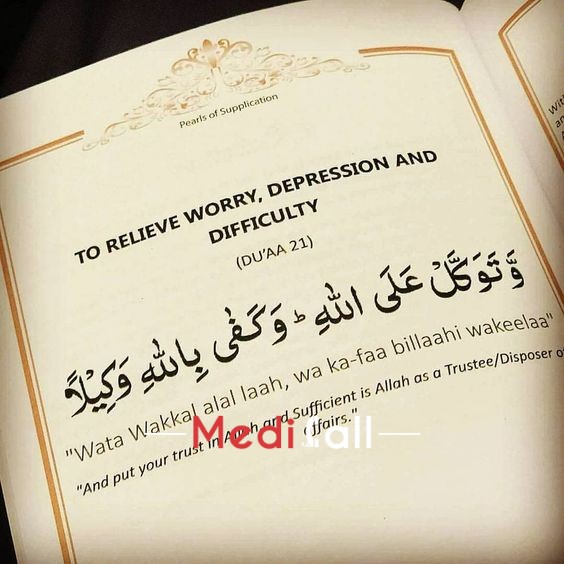 Pearls of Supplication
TO RELIEVE WORRY, DEPRESSION AND
DIFFICULTY
(DU'AA 21)
وَّ تَوَكَّلْ عَلَى اللّٰهِ ؕ وَ كَفٰى بِاللّٰهِ وَكِيْلًا
"Wata Wakkal alal laah, wa ka-faa billaahi wakeelaa"
"And put your trust in Allah and Sufficient is Allah as a Trustee/Disposer of
affairs."
Medi